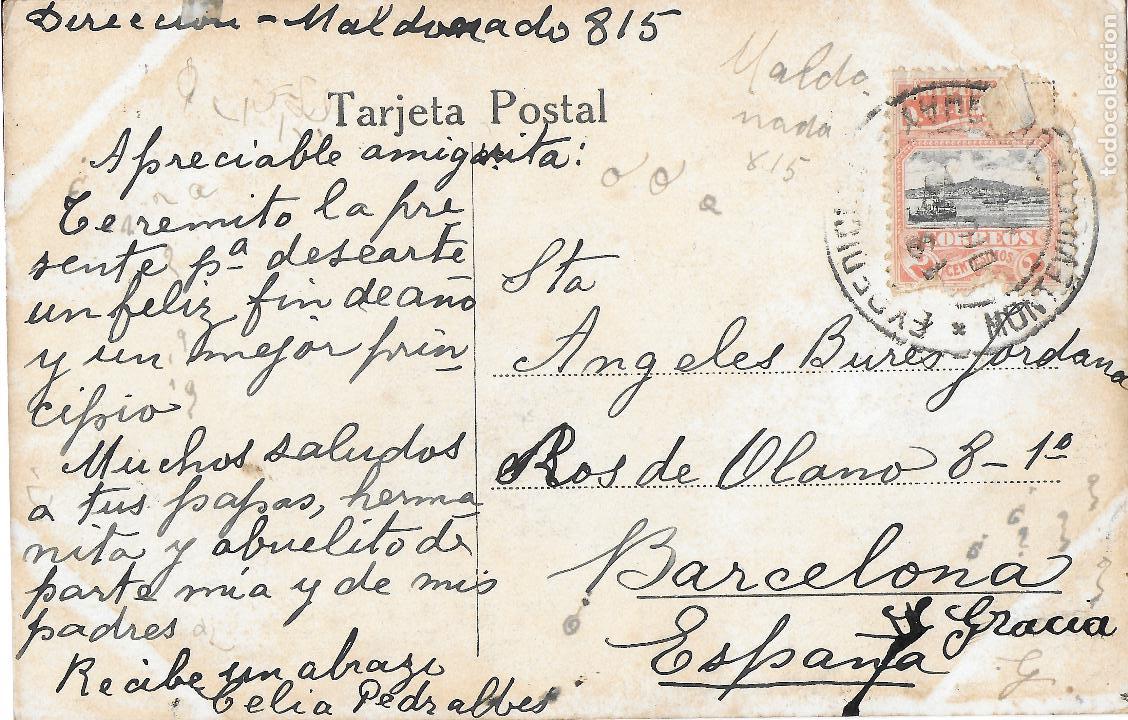 Direccion - Maldonado 815
Maldo
nada
815
Tarjeta Postal
Apreciable amiguita:
Te remito la pre
sente pª desearte
un feliz fin de año
y un mejor prin-
cipio
Muchos saludos
a tus papas, herma
nita y abuelito de
parte mia y de mis
padres
Recibe un abrazo
Celia Pedralbes
Sta
Angeles Bures Jordana
Ros de Olano 8-1º
Barcelona
Gracia
España
G
CORREOS
2 CENTESIMOS 2
MONTEVIDEO
todocoleccion